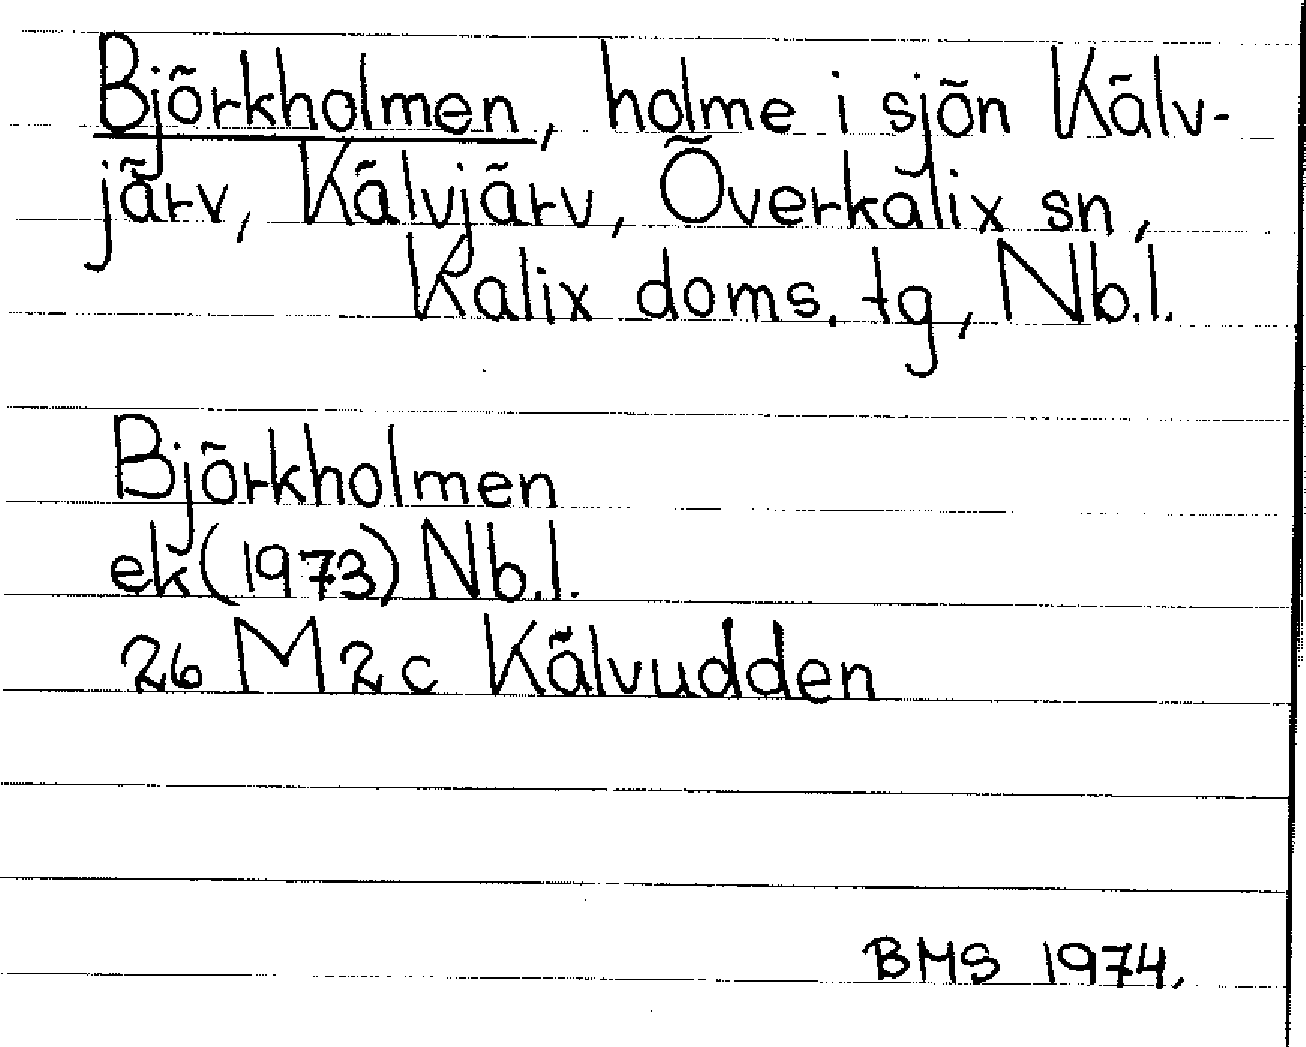 Björkholmen, holme i sjön Kälv-
järv, Kälvjärv, Överkalix sn,
Kalix doms. tg, Nb.l.
Björkholmen
ek (1973) Nb.l.
26 M 2 c Kälvudden
BMS 1974.